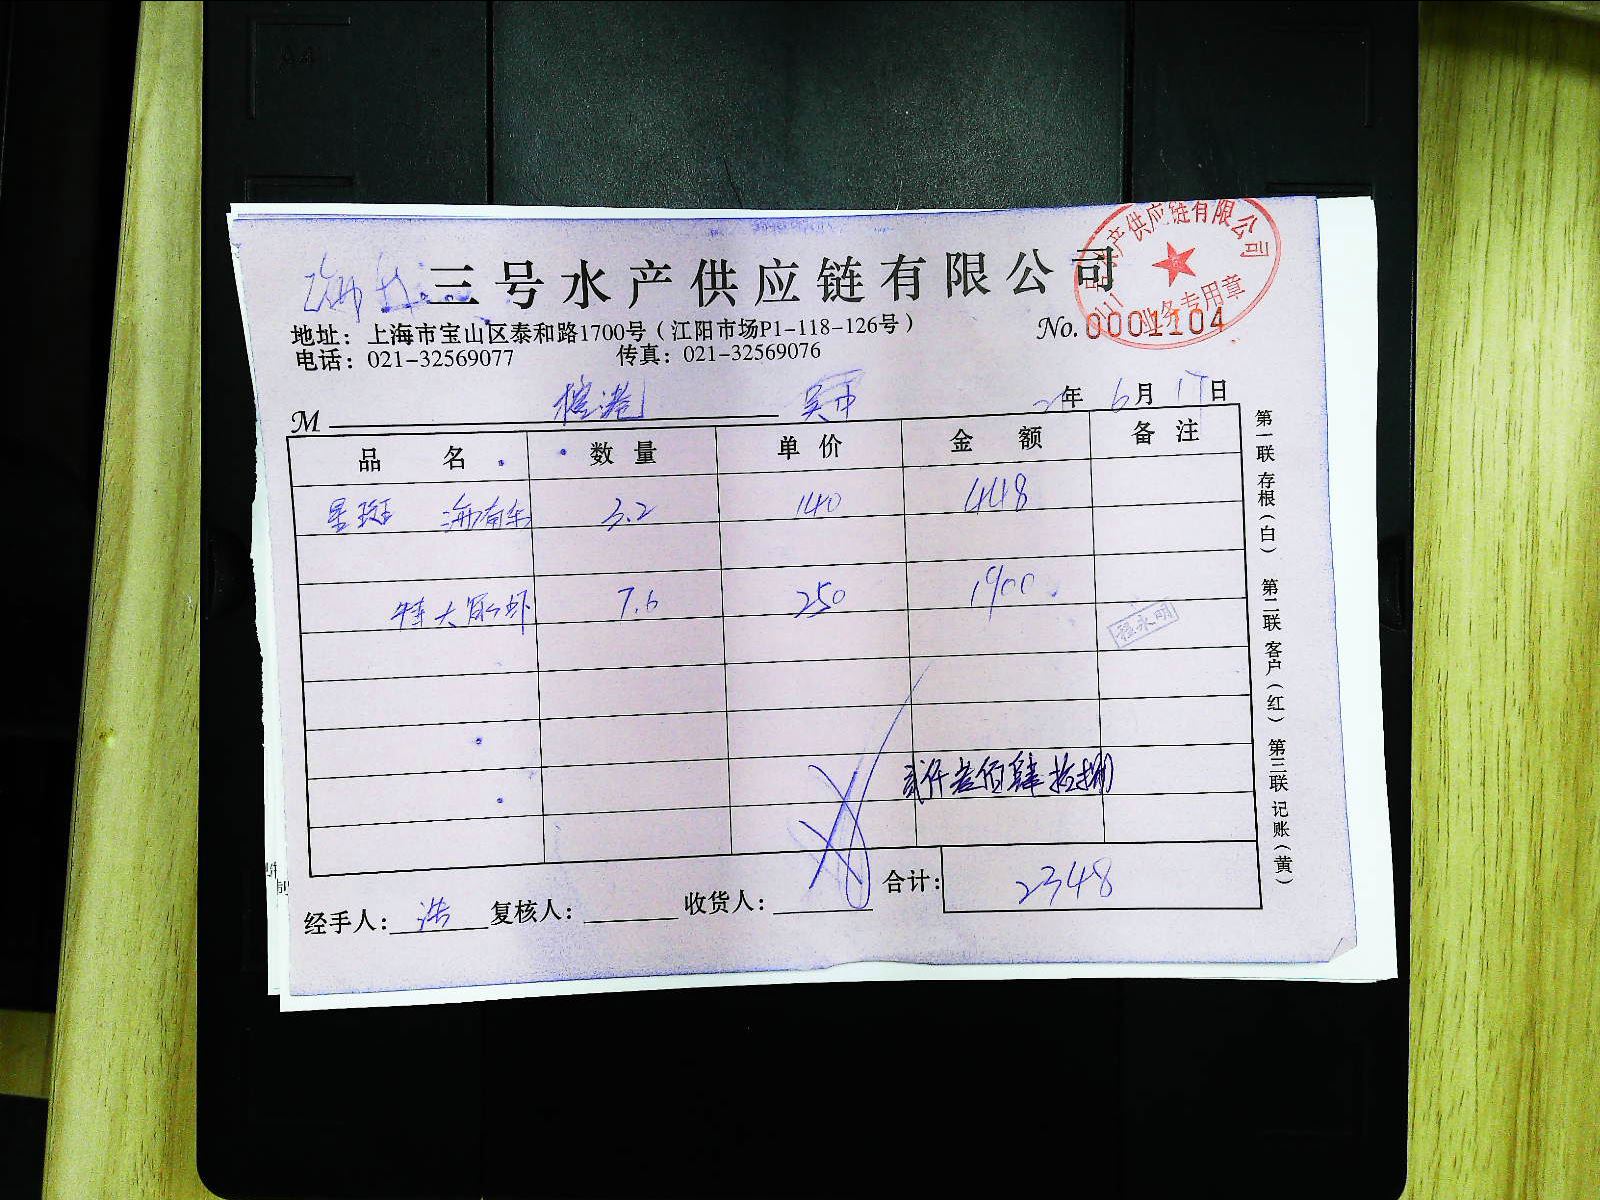 三号水产供应链有限公司
水产供应链有限公司
业务专用章
地址：上海市宝山区泰和路1700号（江阳市场P1-118-126号）
No. 0001104
电话：021-32569077 传真：021-32569076
M 年 6月 17日
品名 数量 单价 金额 备注
星斑 3.2 140 448
特大 虾 7.6 250 1900
程永明
贰仟叁佰肆拾捌
经手人：浩 复核人： 收货人： 合计：2348
第一联 存根（白） 第二联 客户（红） 第三联 记账（黄）